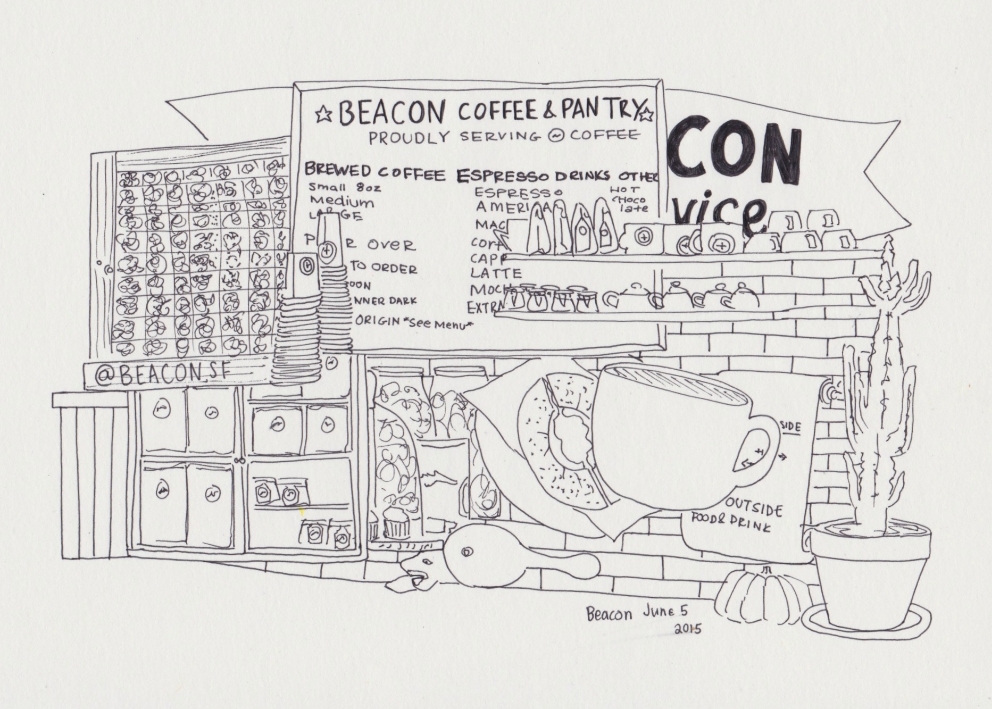 ☆BEACON COFFEE & PANTRY☆
PROUDLY SERVING COFFEE
CON
vice
BREWED COFFEE
small 8oz
Medium
LARGE
P R OVER
TO ORDER
OON
NNER DARK
ORIGIN *See Menu*
ESPRESSO DRINKS
ESPRESSO
AMERI
MAC
COR
CAPP
LATTE
MOCH
EXTR
OTHE
HOT
CHOCO
late
@BEACON.SF
SIDE
→
OUTSIDE
FOOD & DRINK
Beacon June 5
2015